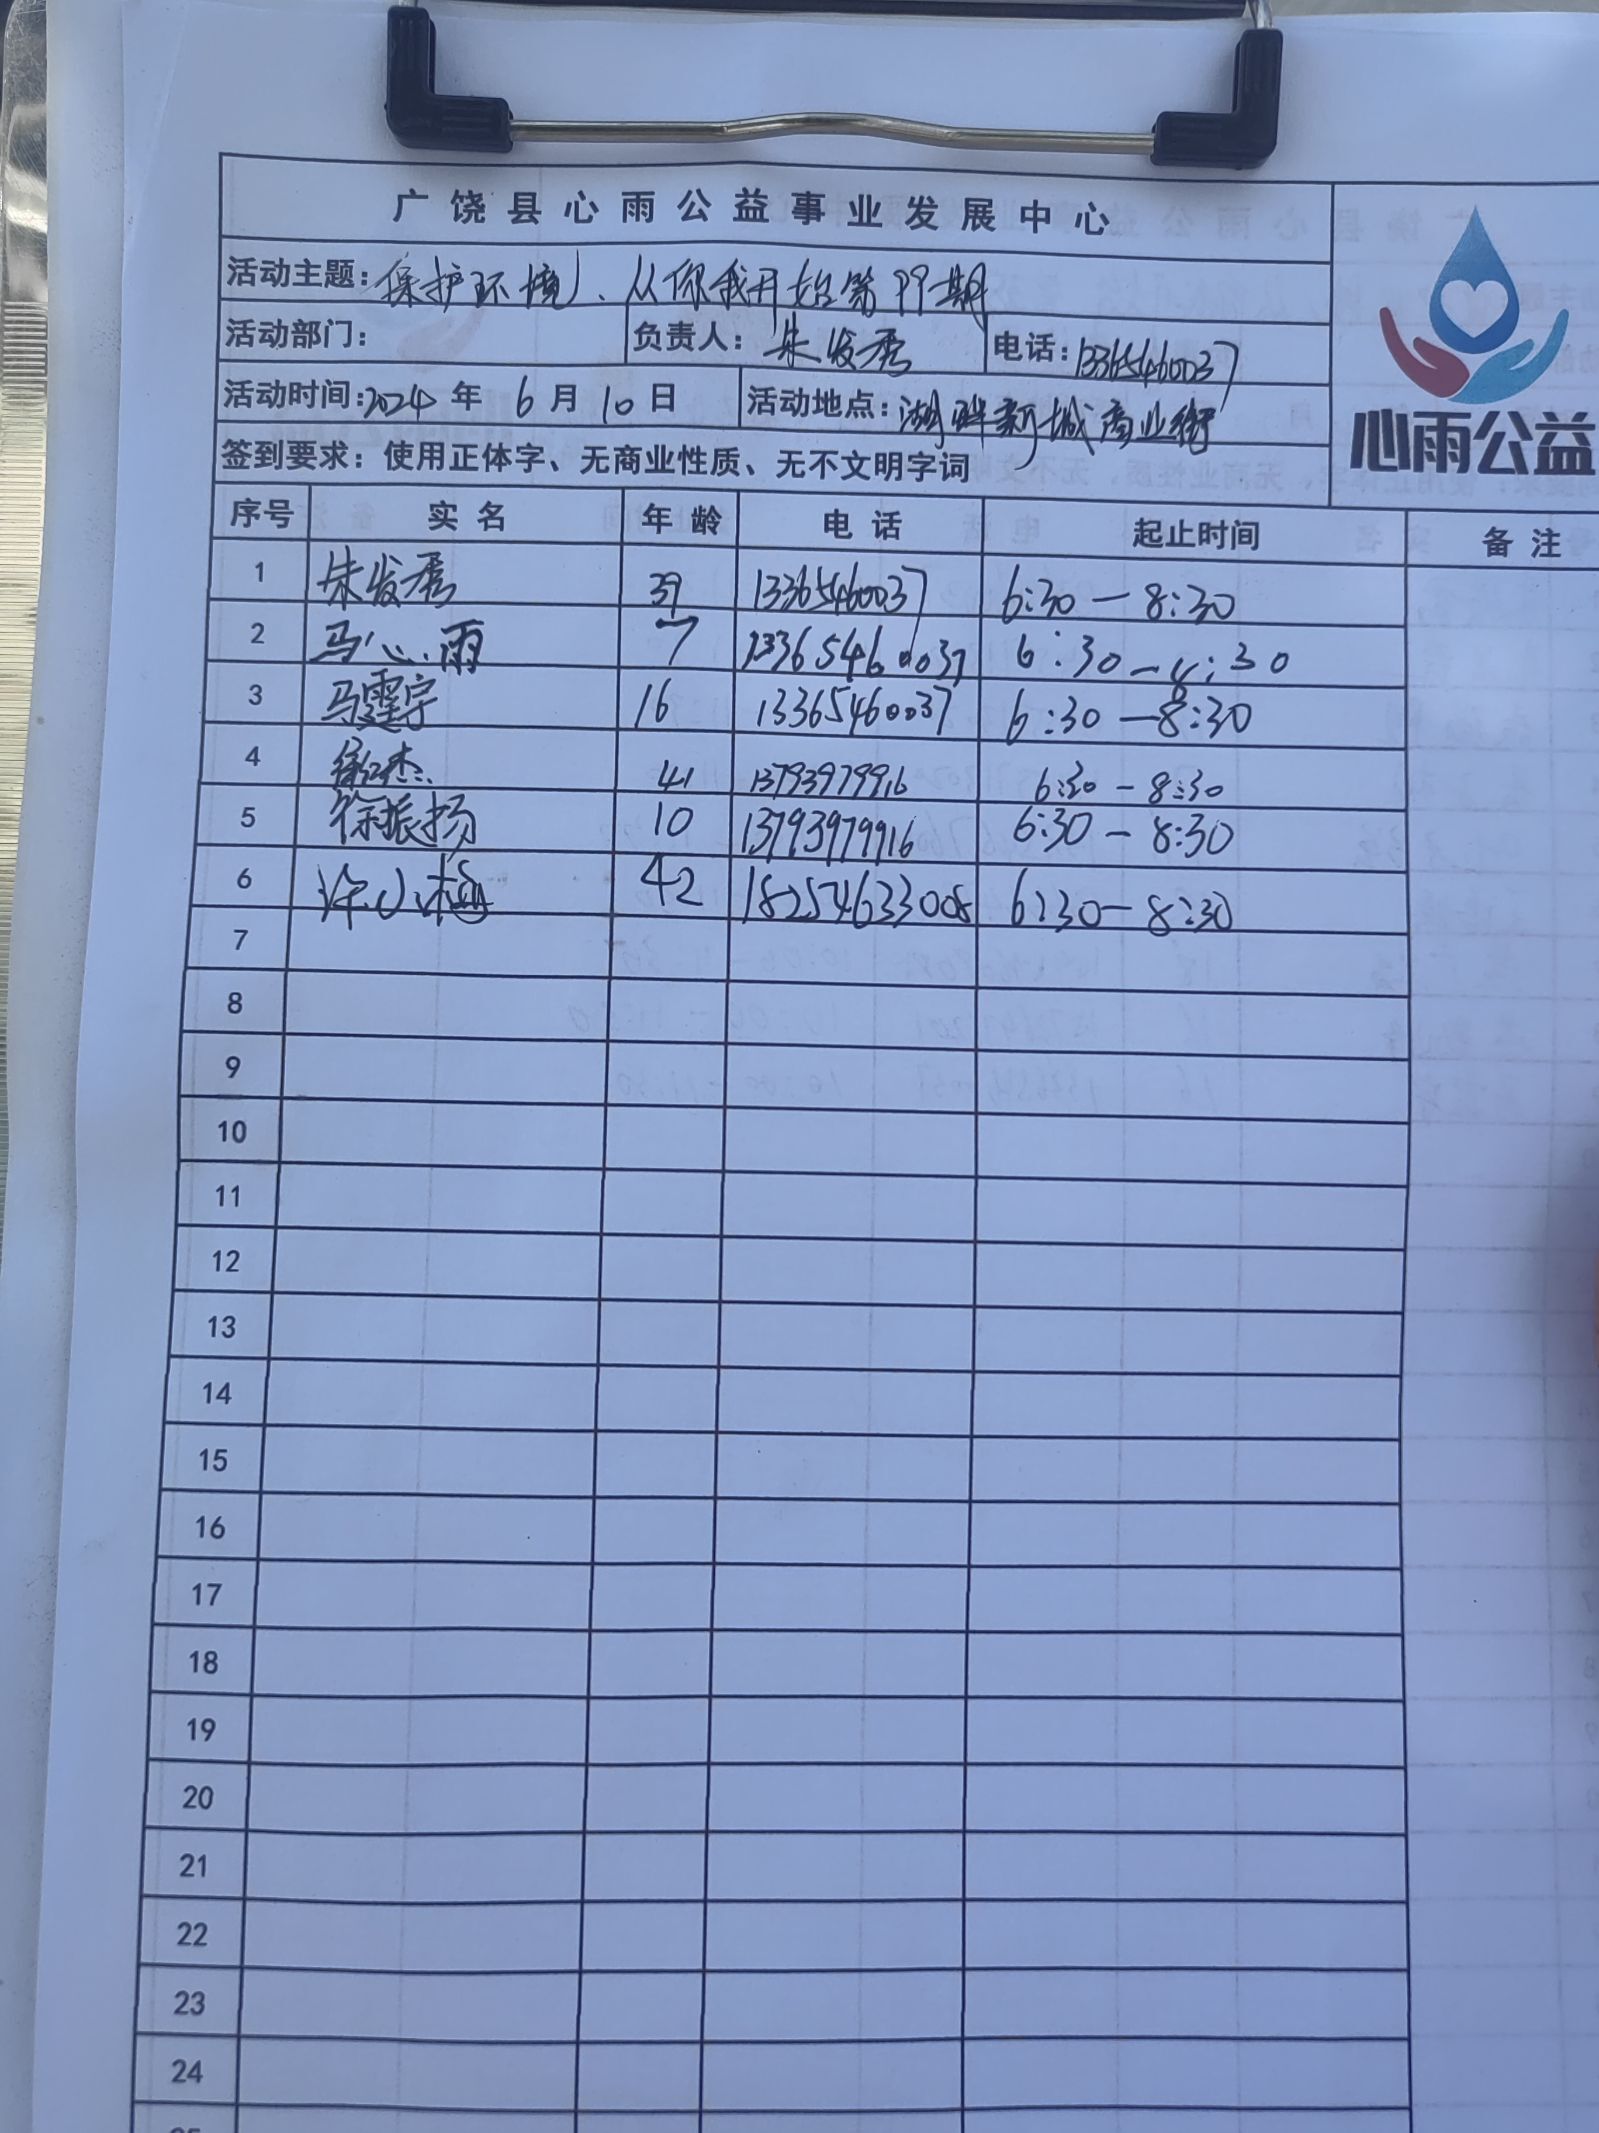 广饶县心雨公益事业发展中心
活动主题：保护环境、从你我开始第99期
活动部门： 负责人：朱发秀 电话：13365460037
活动时间：2024年6月10日 活动地点：湖畔新城商业街
签到要求：使用正体字、无商业性质、无不文明字词
心雨公益
序号 实名 年龄 电话 起止时间 备注
1 朱发秀 39 13365460037 6:30－8:30
2 马心雨 7 13365460037 6:30－8:30
3 马霆宇 16 13365460037 6:30－8:30
4 徐红杰 41 13793979916 6:30－8:30
5 徐振扬 10 13793979916 6:30－8:30
6 许小梅 42 18254633008 6:30－8:30
7
8
9
10
11
12
13
14
15
16
17
18
19
20
21
22
23
24